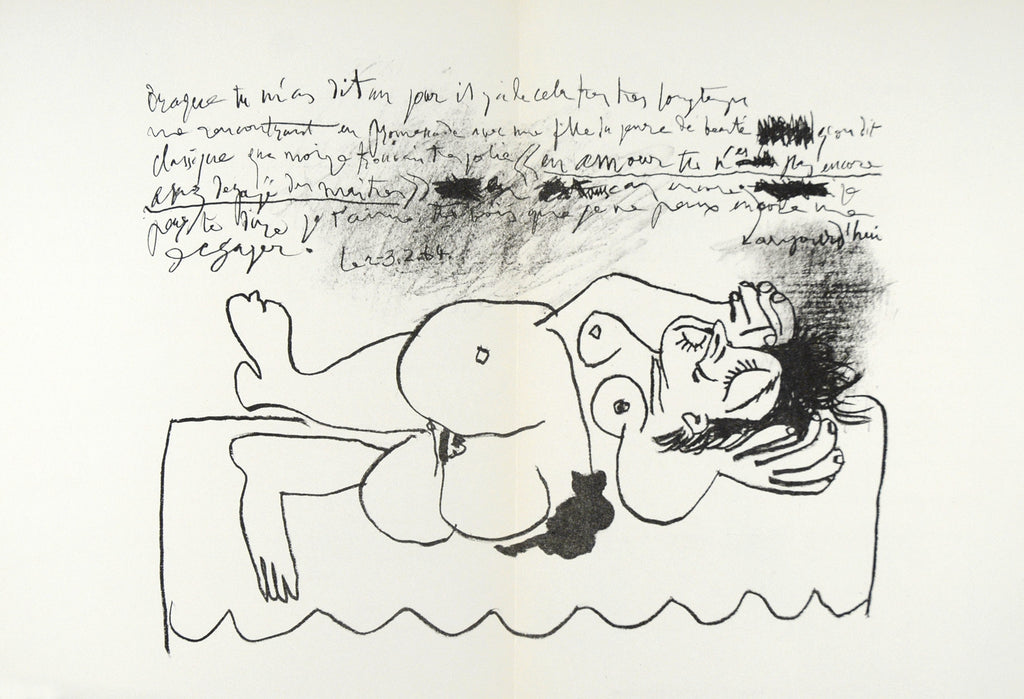 Braque tu m'as dit un jour il y a de cela très très longtemps
me rencontrant en promenade avec une fille du genre de beauté qu'on dit
classique que moi je trouvais très jolie « en amour tu n'es pas encore
assez dégagé des maîtres » encore je
puis te dire je t'aime tu vois que je ne peux encore me
dégager. Le 2-3.2.64. aujourd'hui